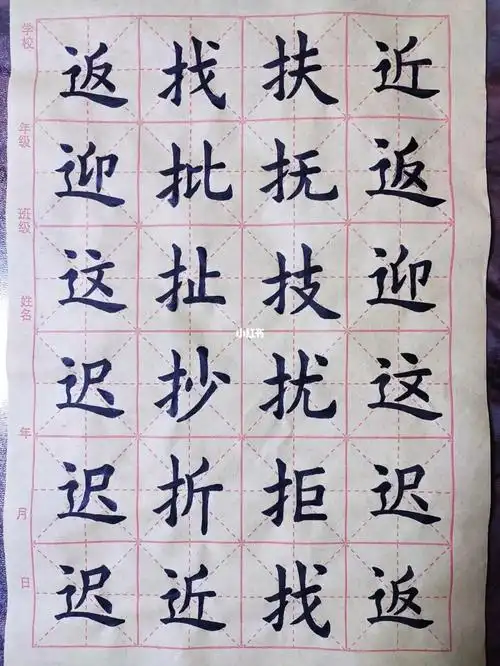 近返迎这迟返
扶抚技扰拒找
找批扯抄折近
返迎这迟迟迟
学校
年级
班级
姓名
年
月
日
小红书